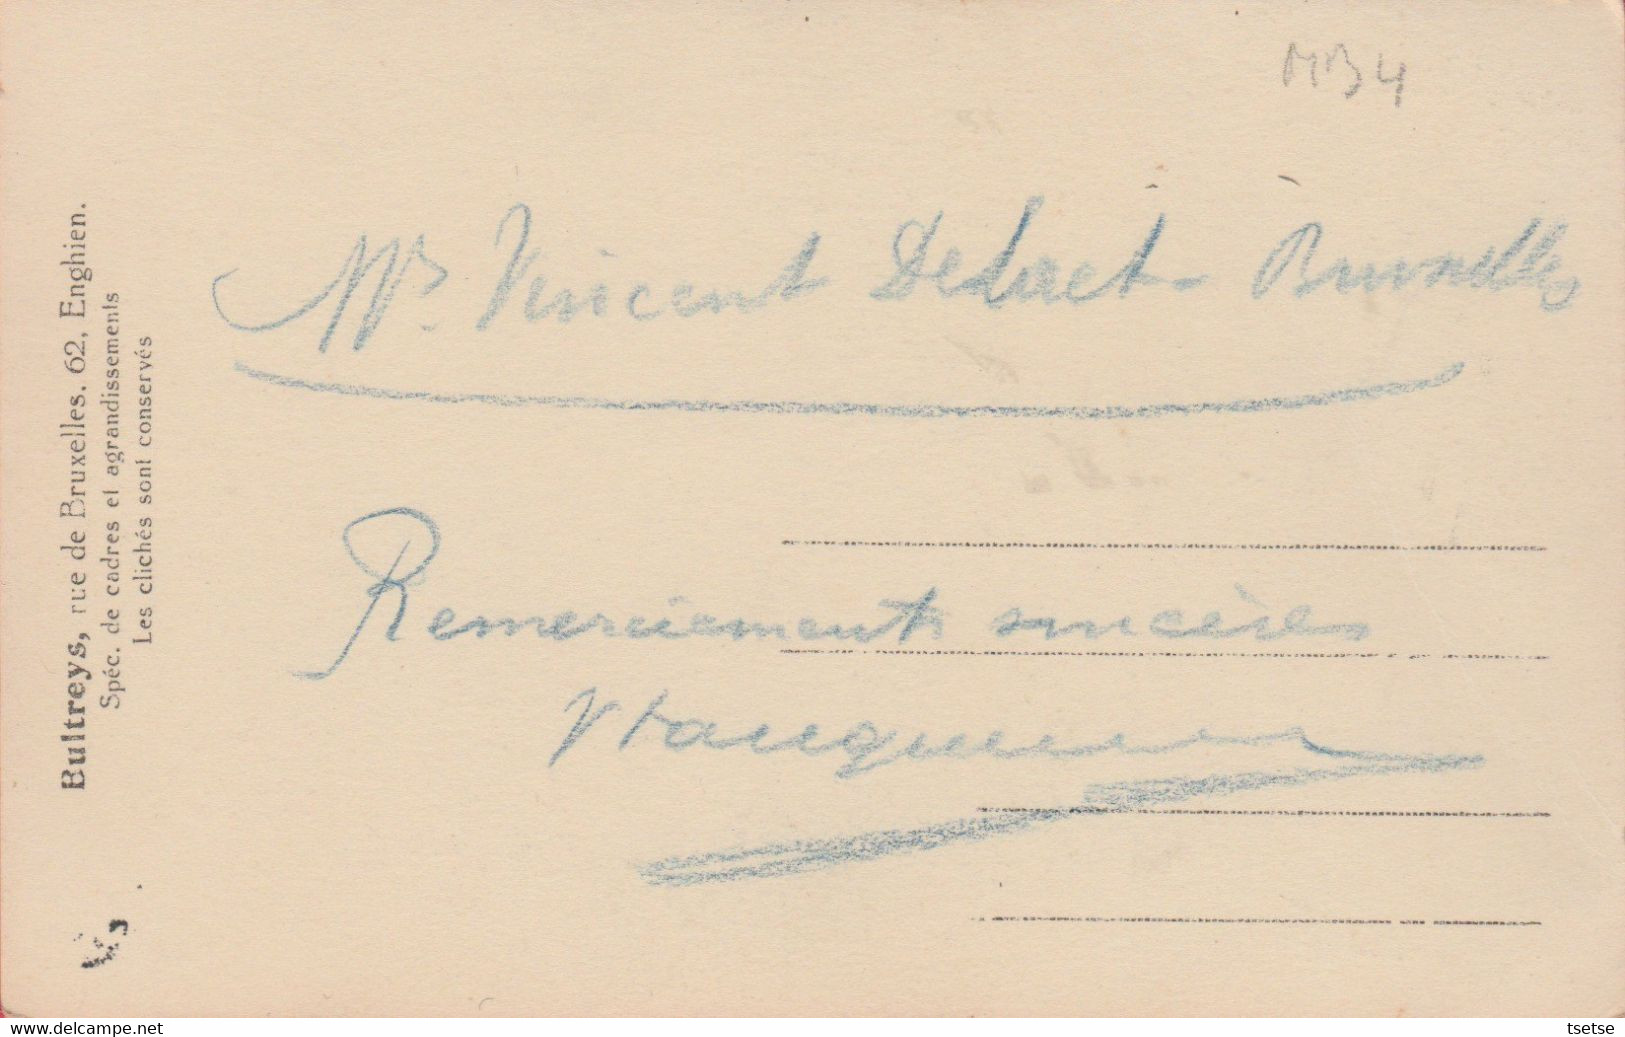 MB4
Mr. Vincent Delaet. Bruxelles
Remerciements sincères
Bultreys, rue de Bruxelles. 62, Enghien.
Spéc. de cadres et agrandissements
Les clichés sont conservés
www.delcampe.net
tsetse